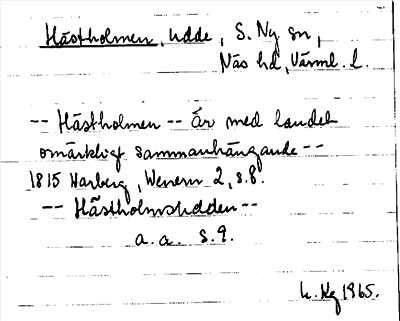 Hästholmen, udde, S. Ny sn,
Näs hd, Värml. l.
-- Hästholmen -- Är med landet
omärkligt sammanhängande --
1815 Warberg, Wenern 2, s.8.
-- Hästholmsudden --
a.a. s.9.
1965.